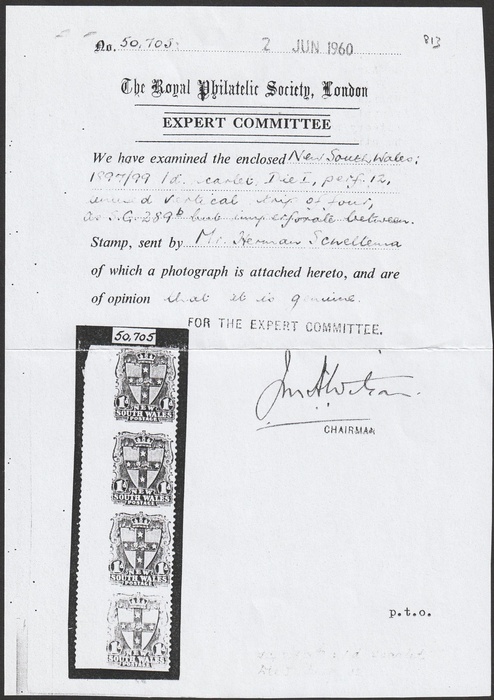 No. 50,705. 2 JUN 1960 813
The Royal Philatelic Society, London
EXPERT COMMITTEE
We have examined the enclosed New South Wales;
1897/99 1d. scarlet, Die I, perf. 12,
unused vertical strip of four,
as S.G. 289b but imperforate between.
Stamp, sent by Mr. Herman Schellema
of which a photograph is attached hereto, and are
of opinion that it is genuine.
FOR THE EXPERT COMMITTEE.
50,705
CHAIRMAN
1D 1D
NEW
SOUTH WALES
POSTAGE
NEW
SOUTH WALES
POSTAGE
NEW
SOUTH WALES
POSTAGE
p.t.o.